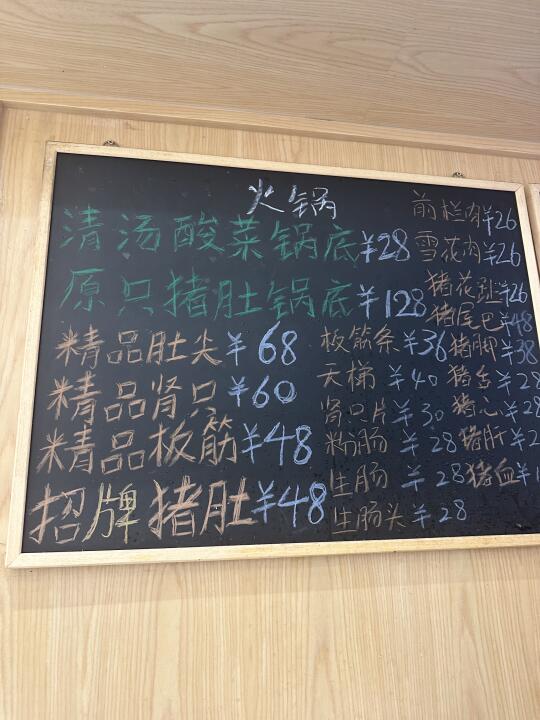 火锅
清汤酸菜锅底¥28
原只猪肚锅底¥128
精品肚尖¥68
精品肾只¥60
精品板筋¥48
招牌猪肚¥48
板筋条¥36
天梯¥40
肾只片¥30
粉肠¥28
生肠¥28
生肠头¥28
前栏肉¥26
雪花肉¥26
猪花趾¥26
猪尾巴¥48
猪脚¥38
猪舌¥28
猪心¥28
猪肝¥2
猪血¥1